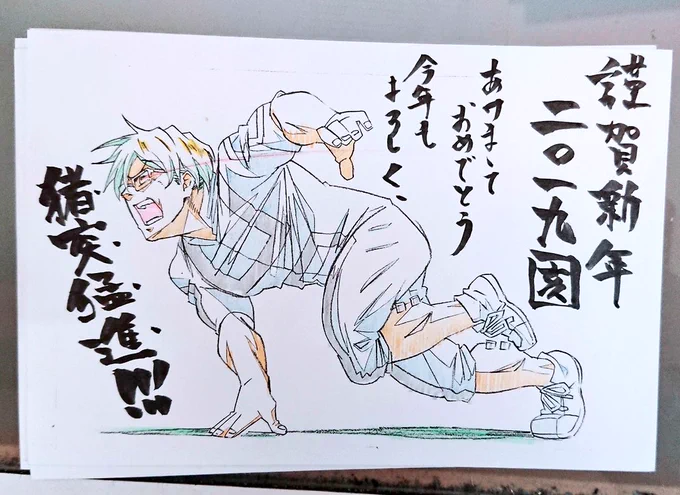 謹賀新年
二〇一九亥
あけまして
おめでとう
今年も
よろしく、
猪突猛進!!!